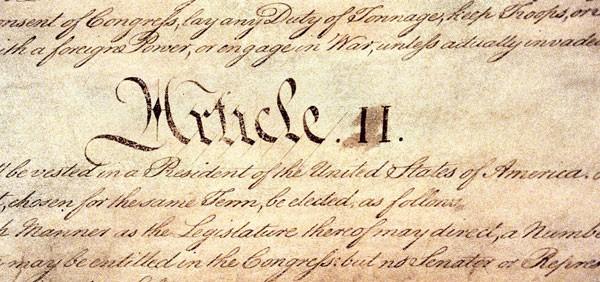 onsent of Congress, lay any Duty of Tonnage, keep Troops, or
with a foreign Power, or engage in War, unless actually invaded
Article. II.
be vested in a President of the United States of America.
chosen for the same Term, be elected, as follows
Manner as the Legislature thereof may direct, a Numbe
may be entitled in the Congress: but no Senator or Repres